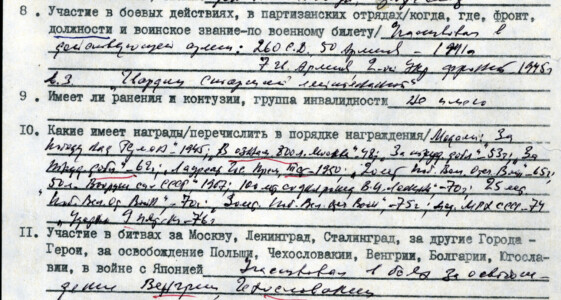 8. Участие в боевых действиях, в партизанских отрядах/когда, где, фронт,
должности и воинское звание-по военному билету/ Участвовал в
действующей армии: 260 С.Д. 50 Армия - 1941г
7 Армия 2-ой Укр фронт 1945г
Гвардии старший лейтенант
9. Имеет ли ранения и контузии, группа инвалидности не имею
10. Какие имеет награды/перечислить в порядке награждения/ Медали: За
победу над Герман" - 1945, В озн 800 л. Москвы" 48г, "За труд. 53г, За
62г, 1950 20 лет Поб. Вел. Отеч. Войн" - 65г
50 л. Вооруж. сил СССР" 1967г 100 лет со дня рожд В.И. Ленина" - 70г 25 лет
Поб. Вел. От. Войн" - 70г 30 лет Поб. Вел. От. Войн" - 75г, СССР - 74
9 - 76г
11. Участие в битвах за Москву, Ленинград, Сталинград, за другие Города -
Герои, за освобождение Польши, Чехословакии, Венгрии, Болгарии, Югосла-
вии, в войне с Японией Участвовал в боях за освобож-
дение Венгрии, Чехословакии